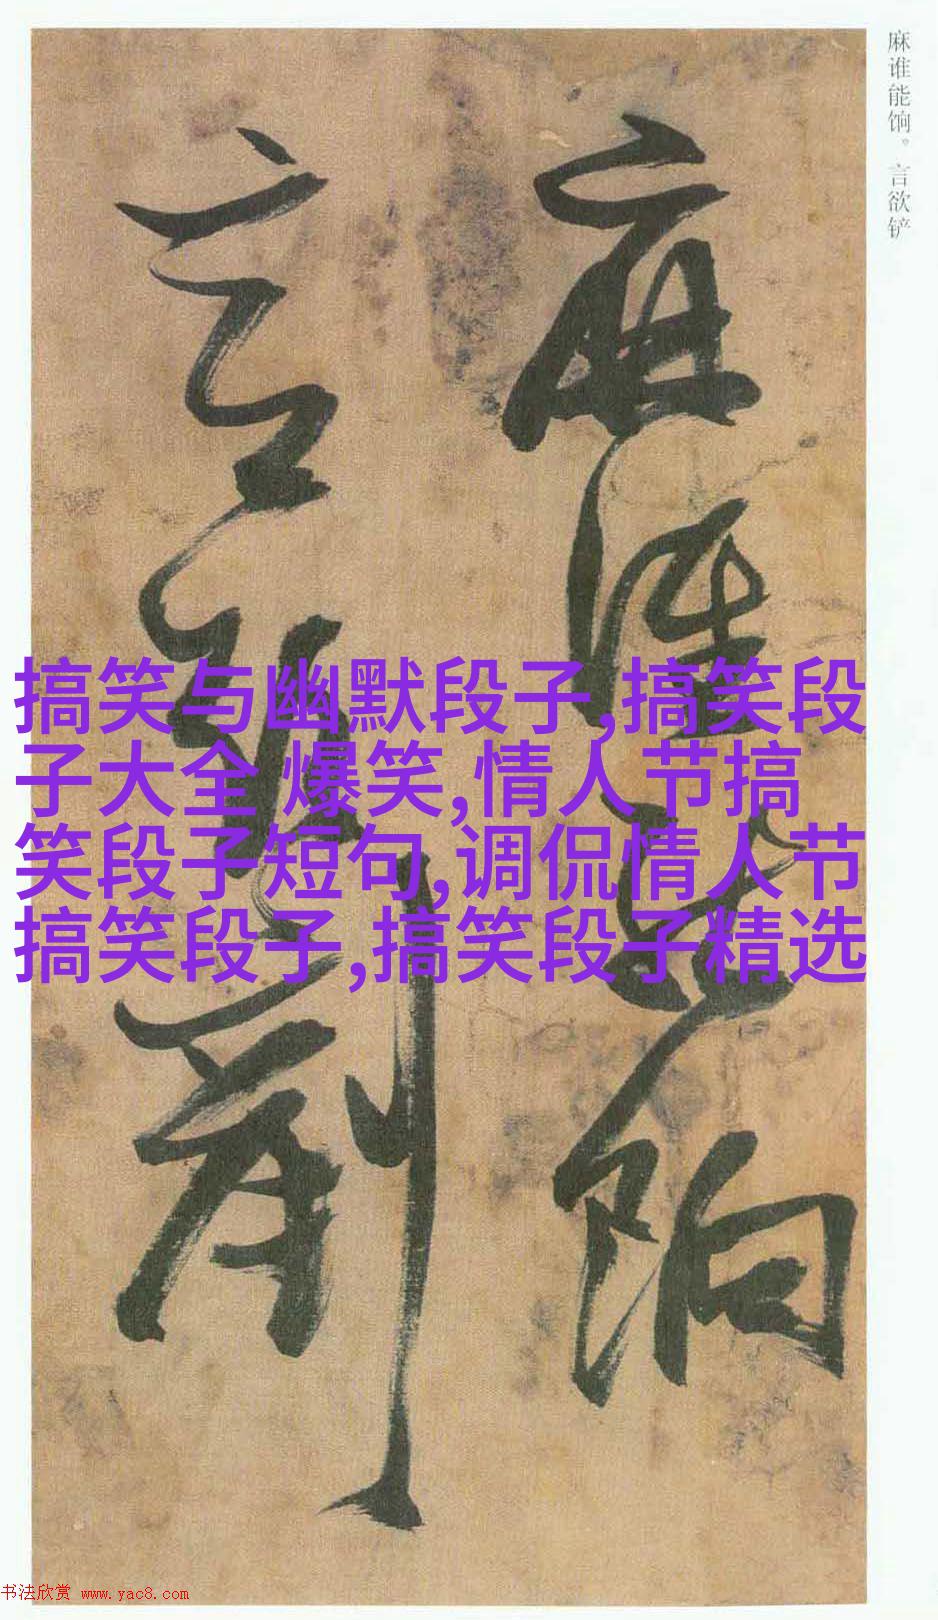 麻谁能饷。言欲铲
麻谁能饷
言欲剷
搞笑与幽默段子,搞笑段
子大全 爆笑,情人节搞
笑段子短句,调侃情人节
搞笑段子,搞笑段子精选
书法欣赏 www.yac8.com